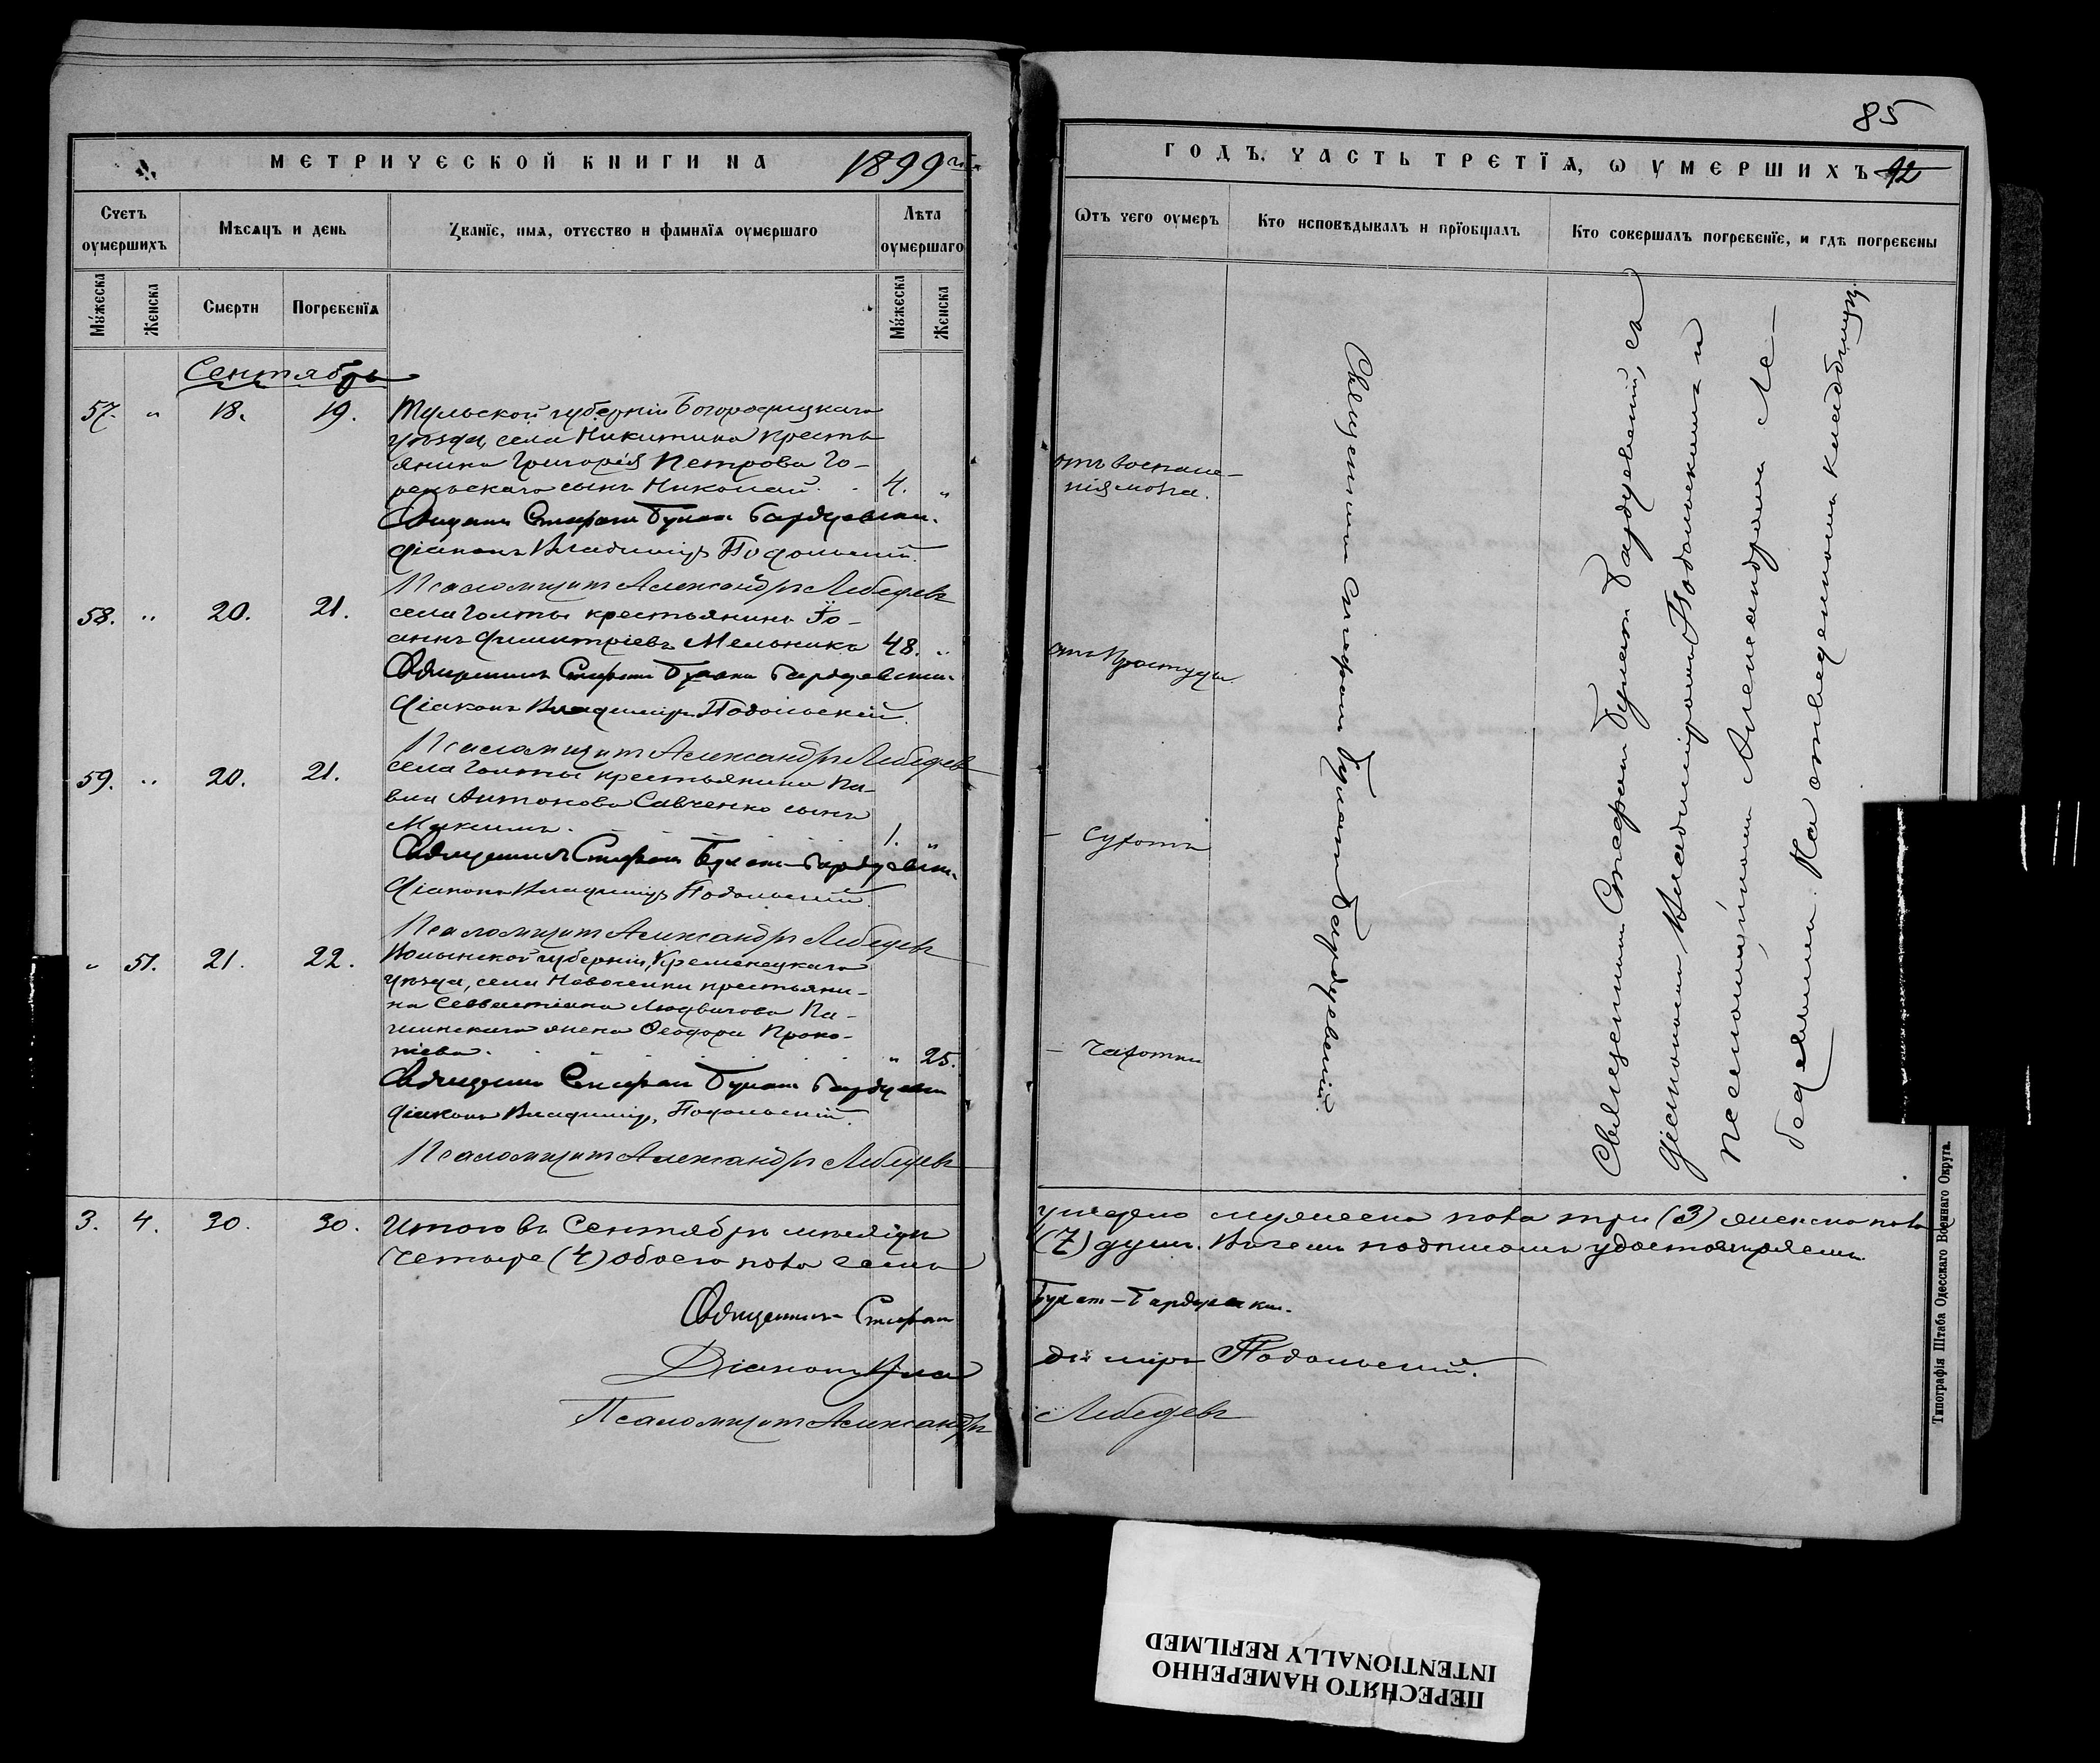 МЕТРИЧЕСКОЙ КНИГИ НА 1899 г.
Счетъ оумершихъ
Мѣсяцъ и день
Званіе, имя, отчество и фамилія оумершаго
Лѣта оумершаго
Мужеска
Женска
Смерти
Погребенія
Мужеска
Женска
Сентябрь
57. " 18. 19. Тульской губерніи Богородицкаго
уѣзда, села Никитина кресть-
янина Григорія Петрова Го-
рельскаго сынъ Николай. 4. "
Священникъ Стефанъ Булат Бардуевскій.
Діаконъ Владиміръ Подольскій.
Псаломщикъ Александръ Лебедевъ
58. " 20. 21. села Голты крестьянинъ Іо-
аннъ Димитріевъ Мельникъ 48. "
Священникъ Стефанъ Булат Бардуевскій.
Діаконъ Владиміръ Подольскій.
Псаломщикъ Александръ Лебедевъ
59. " 20. 21. села Голты крестьянина Па-
вла Антонова Савченко сынъ
Максимъ. 1. "
Священникъ Стефанъ Булат-Бардуевскій.
Діаконъ Владиміръ Подольскій.
Псаломщикъ Александръ Лебедевъ
" 51. 21. 22. Волынской губерніи, Кременецкаго
уѣзда, села Новоселки крестьяни-
на Севастіана Людвигова
жена Феодора Проко-
піева. " 25.
Священникъ Стефанъ Булат Бардуевскій
Діаконъ Владиміръ Подольскій.
Псаломщикъ Александръ Лебедевъ
3. 4. 30. 30. Итого въ Сентябрѣ мѣсяцѣ
четыре (4) обоего пола семь
Священникъ Стефанъ
Діаконъ Вла
Псаломщикъ Александръ
85
ГОДЪ, ЧАСТЬ ТРЕТІЯ, О УМЕРШИХЪ 92
Отъ чего оумеръ
Кто исповѣдывалъ и пріобщалъ
Кто совершалъ погребеніе, и гдѣ погребены
отъ воспале-
нія мозга.
отъ простуды
- сухоты
- чахотки
Священникъ Стефанъ Булат Бардуевскій.
Священникъ Стефанъ Булат Бардуевскій, съ
діакономъ Владиміромъ Подольскимъ и
псаломщикомъ Александромъ Ле-
бедевымъ. На отведенномъ кладбищѣ.
умерло мужеска пола три (3) женска пола
(7) душъ. Въ чемъ подписомъ удостовѣряемъ.
Булат-Бардуевскій.
диміръ Подольскій.
Лебедевъ
Типографія Штаба Одесскаго Военнаго Округа.
ПЕРЕСНЯТО НАМЕРЕННО
INTENTIONALLY REFILMED